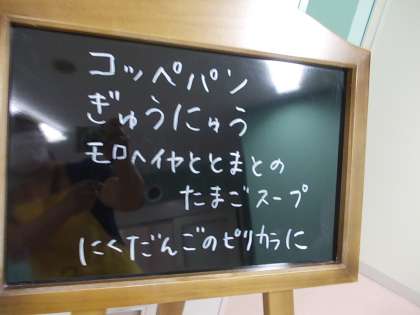 コッペパン
ぎゅうにゅう
モロヘイヤととまとの
たまごスープ
にくだんごのピリカラに